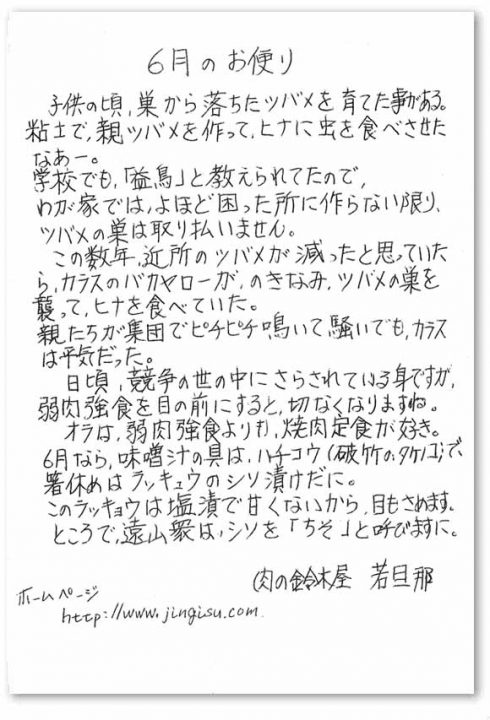 6月のお便り
子供の頃,巣から落ちたツバメを育てた事がある。
粘土で,親ツバメを作って,ヒナに虫を食べさせた
なあー。
学校でも,「益鳥」と教えられてたので,
わが家では,よほど困った所に作らない限り,
ツバメの巣は取り払いません。
この数年,近所のツバメが減ったと思っていた
ら,カラスのバカヤローが,のきなみ,ツバメの巣を
襲って,ヒナを食べていた。
親たちが集団でピチピチ鳴いて騒いでも,カラス
は平気だった。
日頃,競争の世の中にさらされている身ですが,
弱肉強食を目の前にすると,切なくなりますね。
オラは,弱肉強食よりも,焼肉定食が好き。
6月なら,味噌汁の具は,ハチコウ(破竹の:タケノコ)で,
箸休めはラッキュウのシソ漬けだに。
このラッキョウは塩漬で甘くないから,目もさめます。
ところで,遠山衆は,シソを「ちそ」と呼びますに。
肉の鈴木屋 若旦那
ホームページ
http://www.jingisu.com